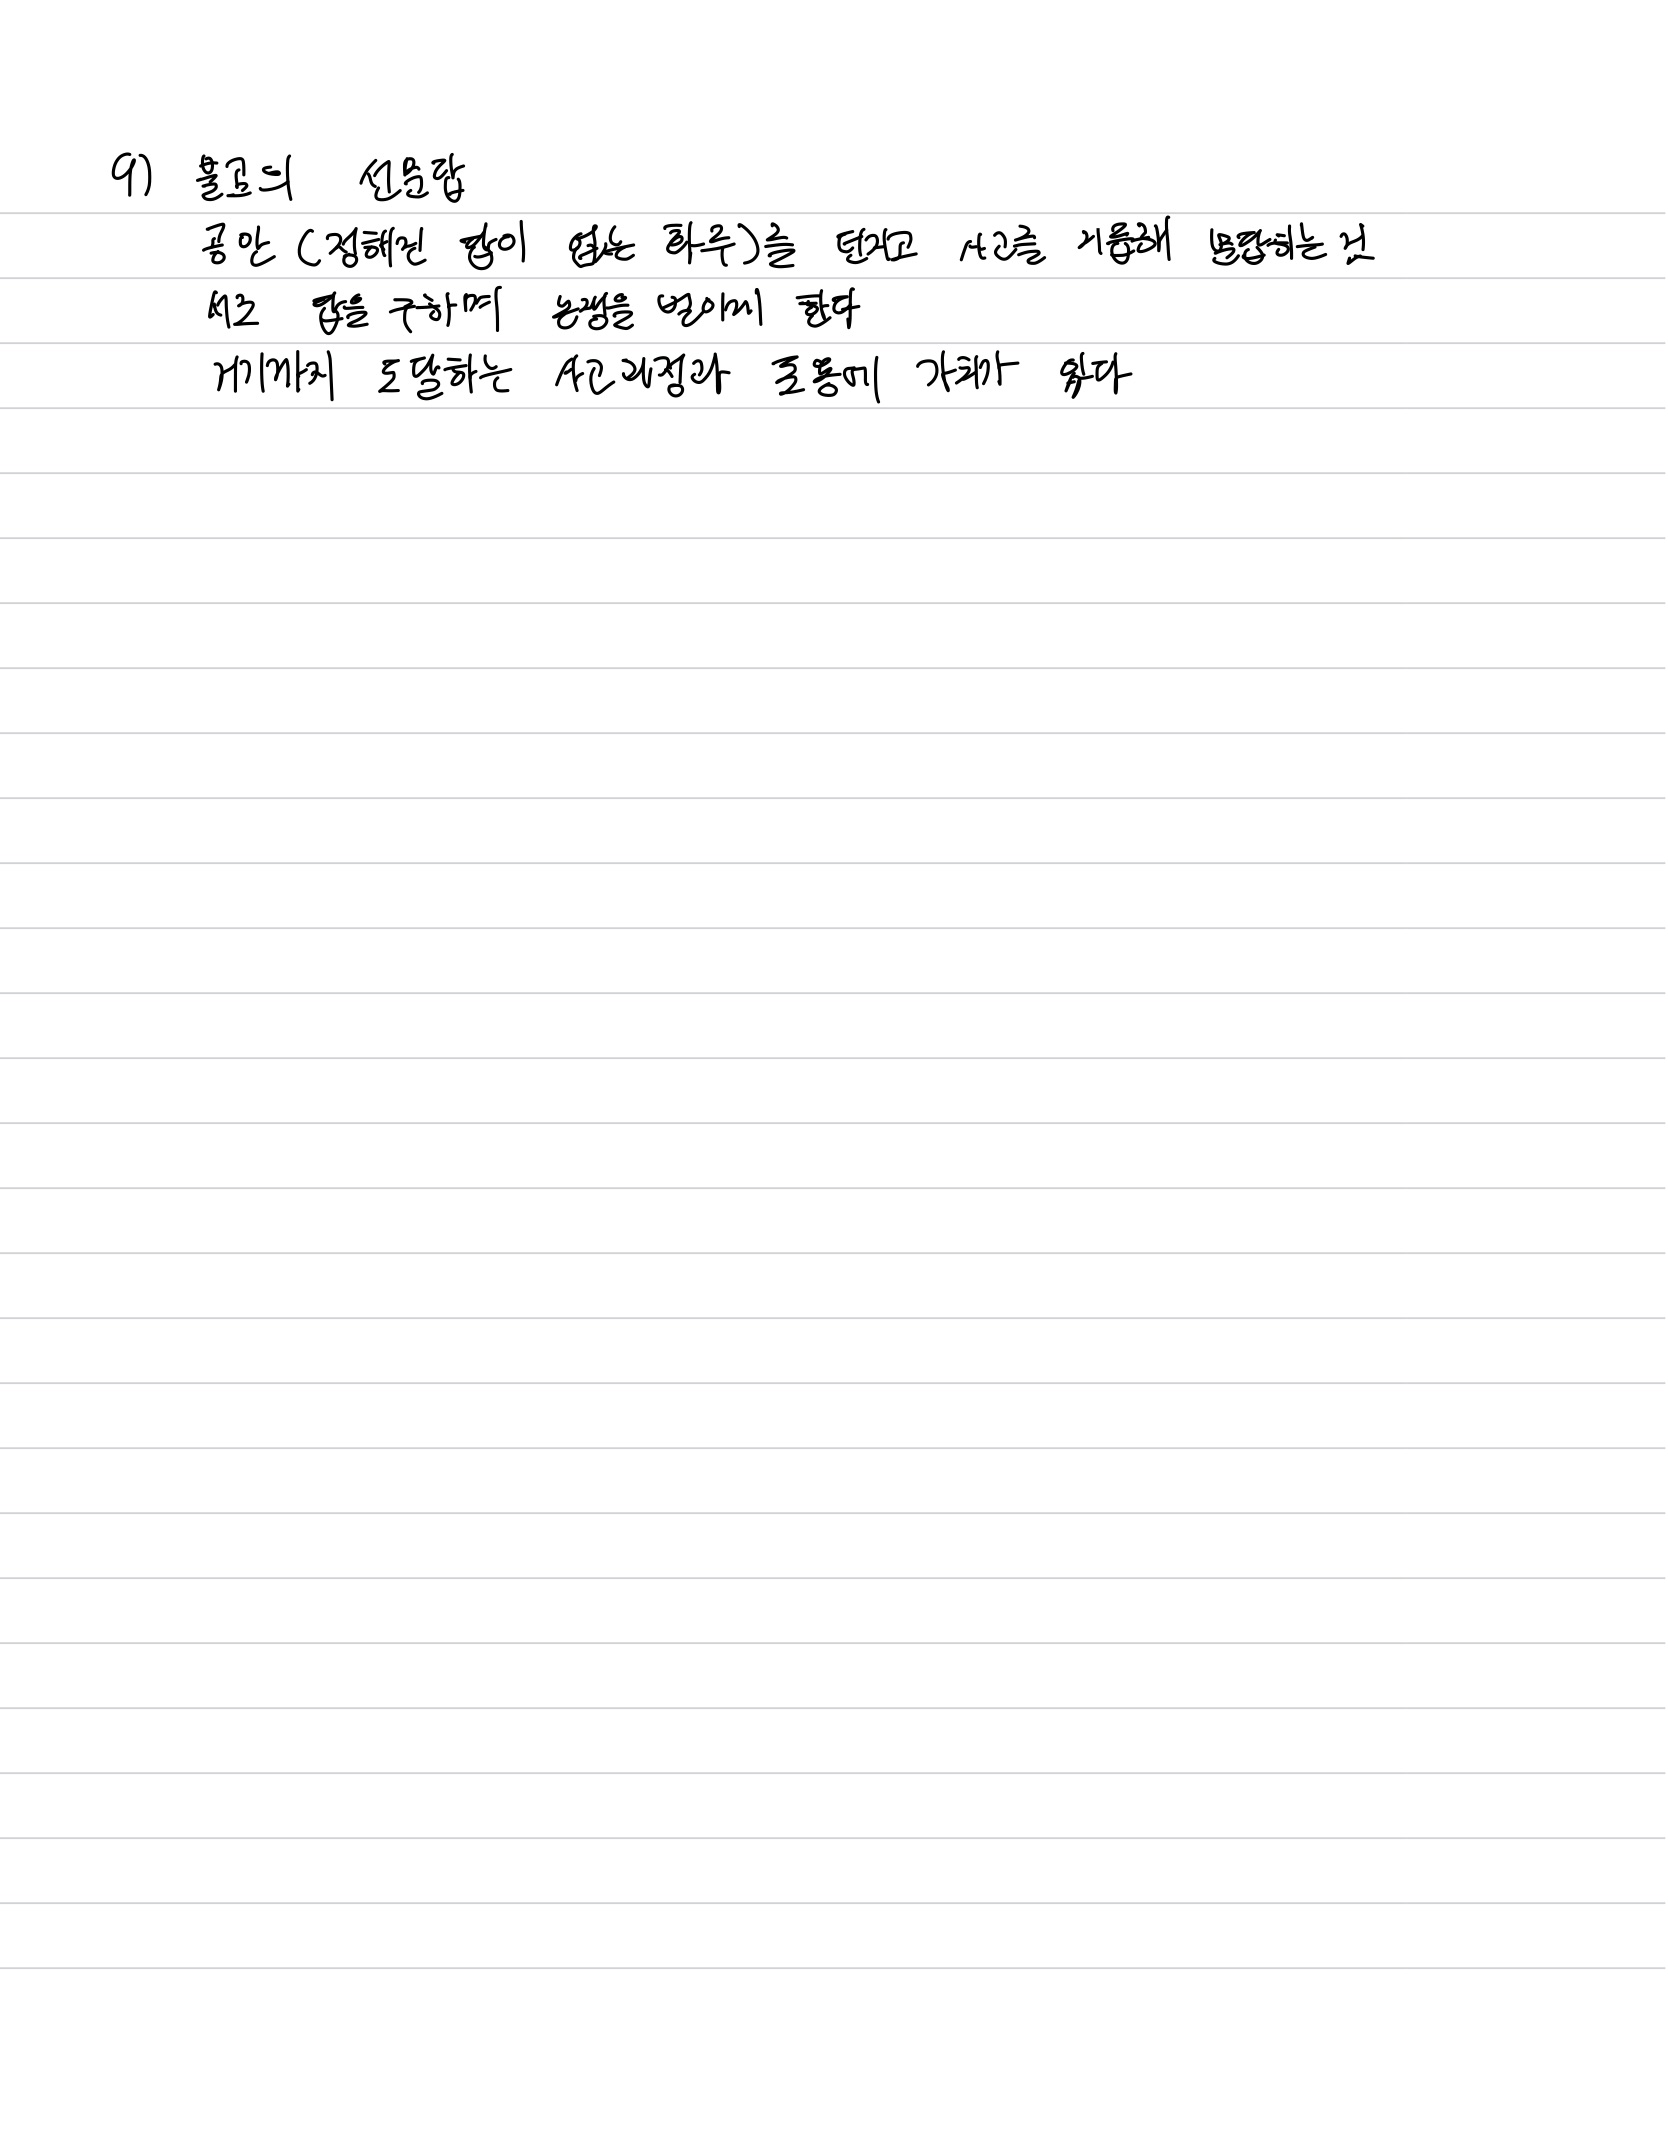 9) 불교의 선문답
공안 (정해진 답이 없는 화두)를 던지고 사고를 거듭해 문답하는 것
서로 답을 구하며 논쟁을 벌이게 한다
거기까지 도달하는 사고과정과 효용에 가치가 있다